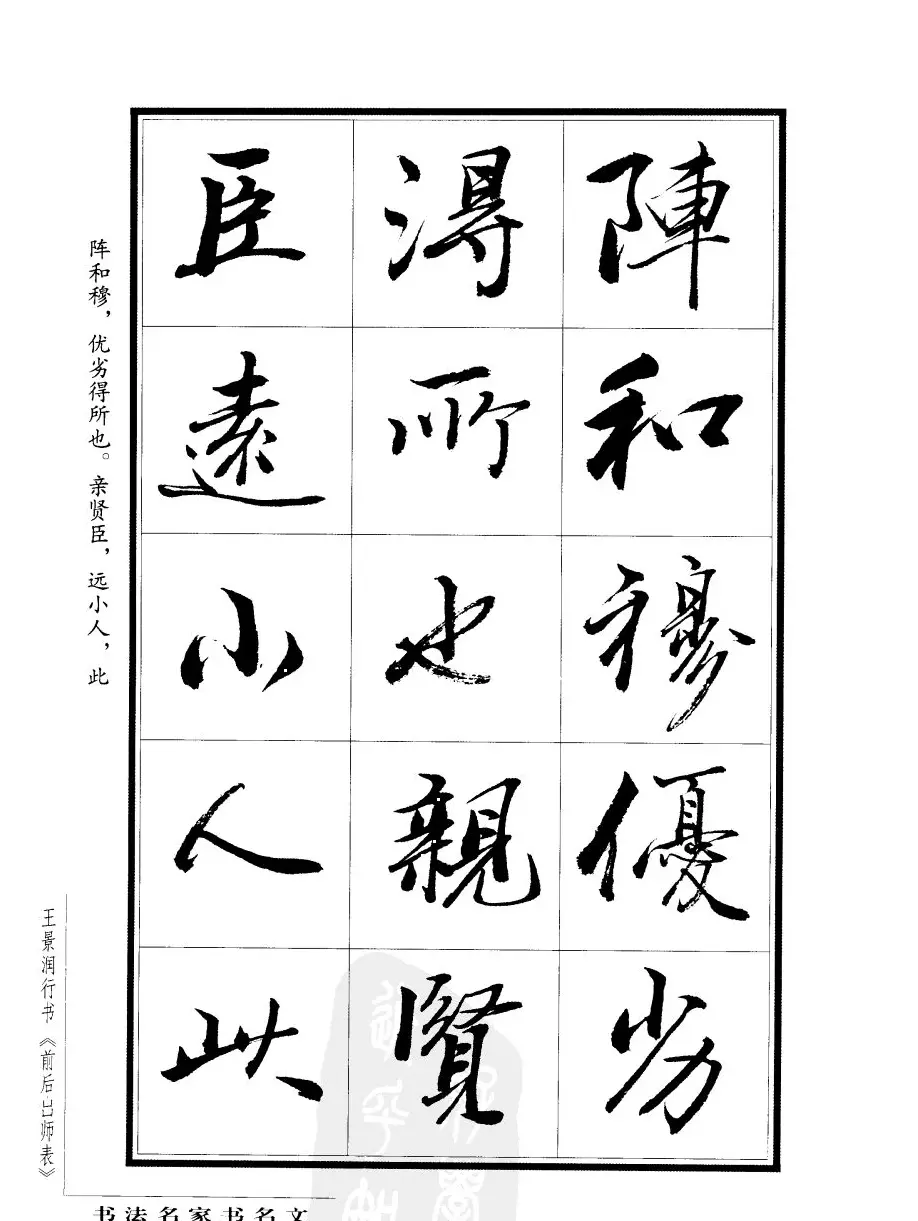 陣和穆優劣
得所也親賢
臣遠小人此
阵和穆，优劣得所也。亲贤臣，远小人，此
王景润行书《前后出师表》
书法名家书名文